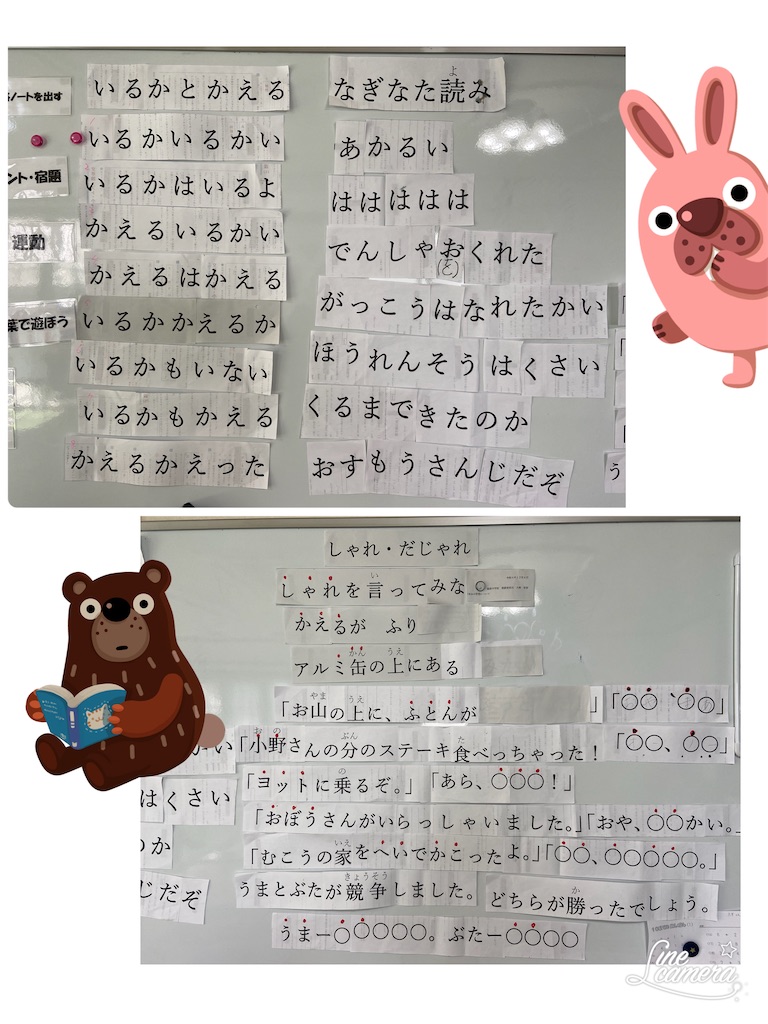 ノートを出す
ント・宿題
運動
葉で遊ぼう
いるかとかえる
いるかいるかい
いるかはいるよ
かえるいるかい
かえるはかえる
いるかかえるか
いるかもいない
いるかもかえる
かえるかえった
なぎなた読み
よ
あかるい
ははははは
でんしゃおくれた
(と)
がっこうはなれたかい
ほうれんそうはくさい
くるまできたのか
おすもうさんじだぞ
う
しゃれ・だじゃれ
しゃれを言ってみな
い
かえるが ふり
アルミ缶の上にある
かん うえ
「お山の上に、ふとんが 」「○○、○○」
やま うえ
かい「小野さんの分のステーキ食べっちゃった!「○○、○○」
おの ぶん た
「ヨットに乗るぞ。」「あら、○○○!」
の
はくさい
「おぼうさんがいらっしゃいました。」「おや、○○かい。
「むこうの家をへいでかこったよ。」「○○、○○○○○。」
いえ
のか
うまとぶたが競争しました。 どちらが勝ったでしょう。
きょうそう か
じだぞ
うまー○○○○○。ぶたー○○○○
Line camera